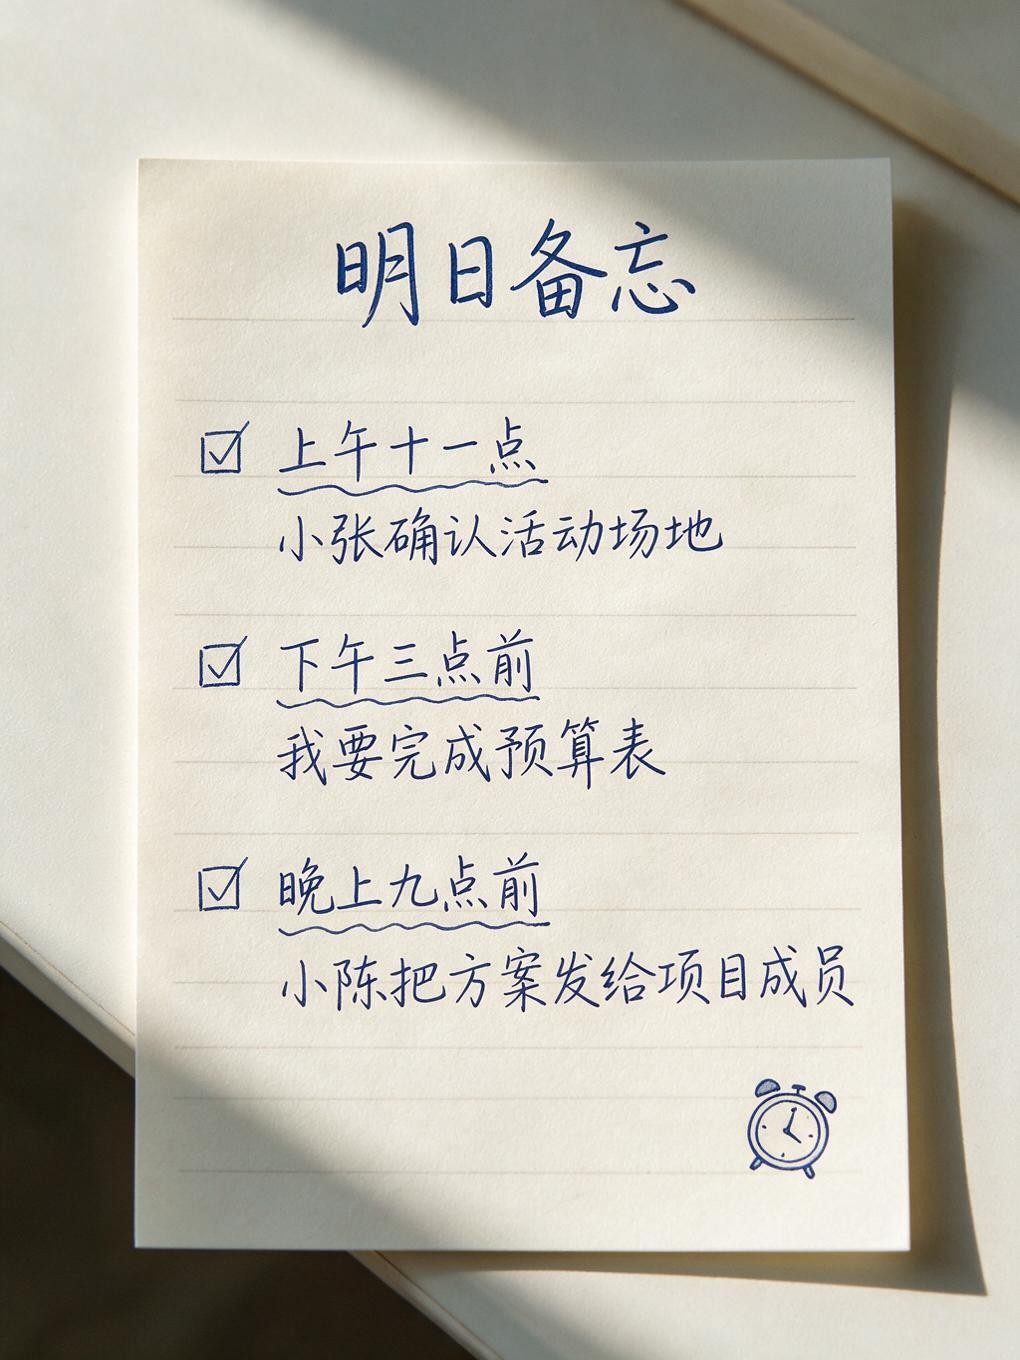 明日备忘
上午十一点
小张确认活动场地
下午三点前
我要完成预算表
晚上九点前
小陈把方案发给项目成员